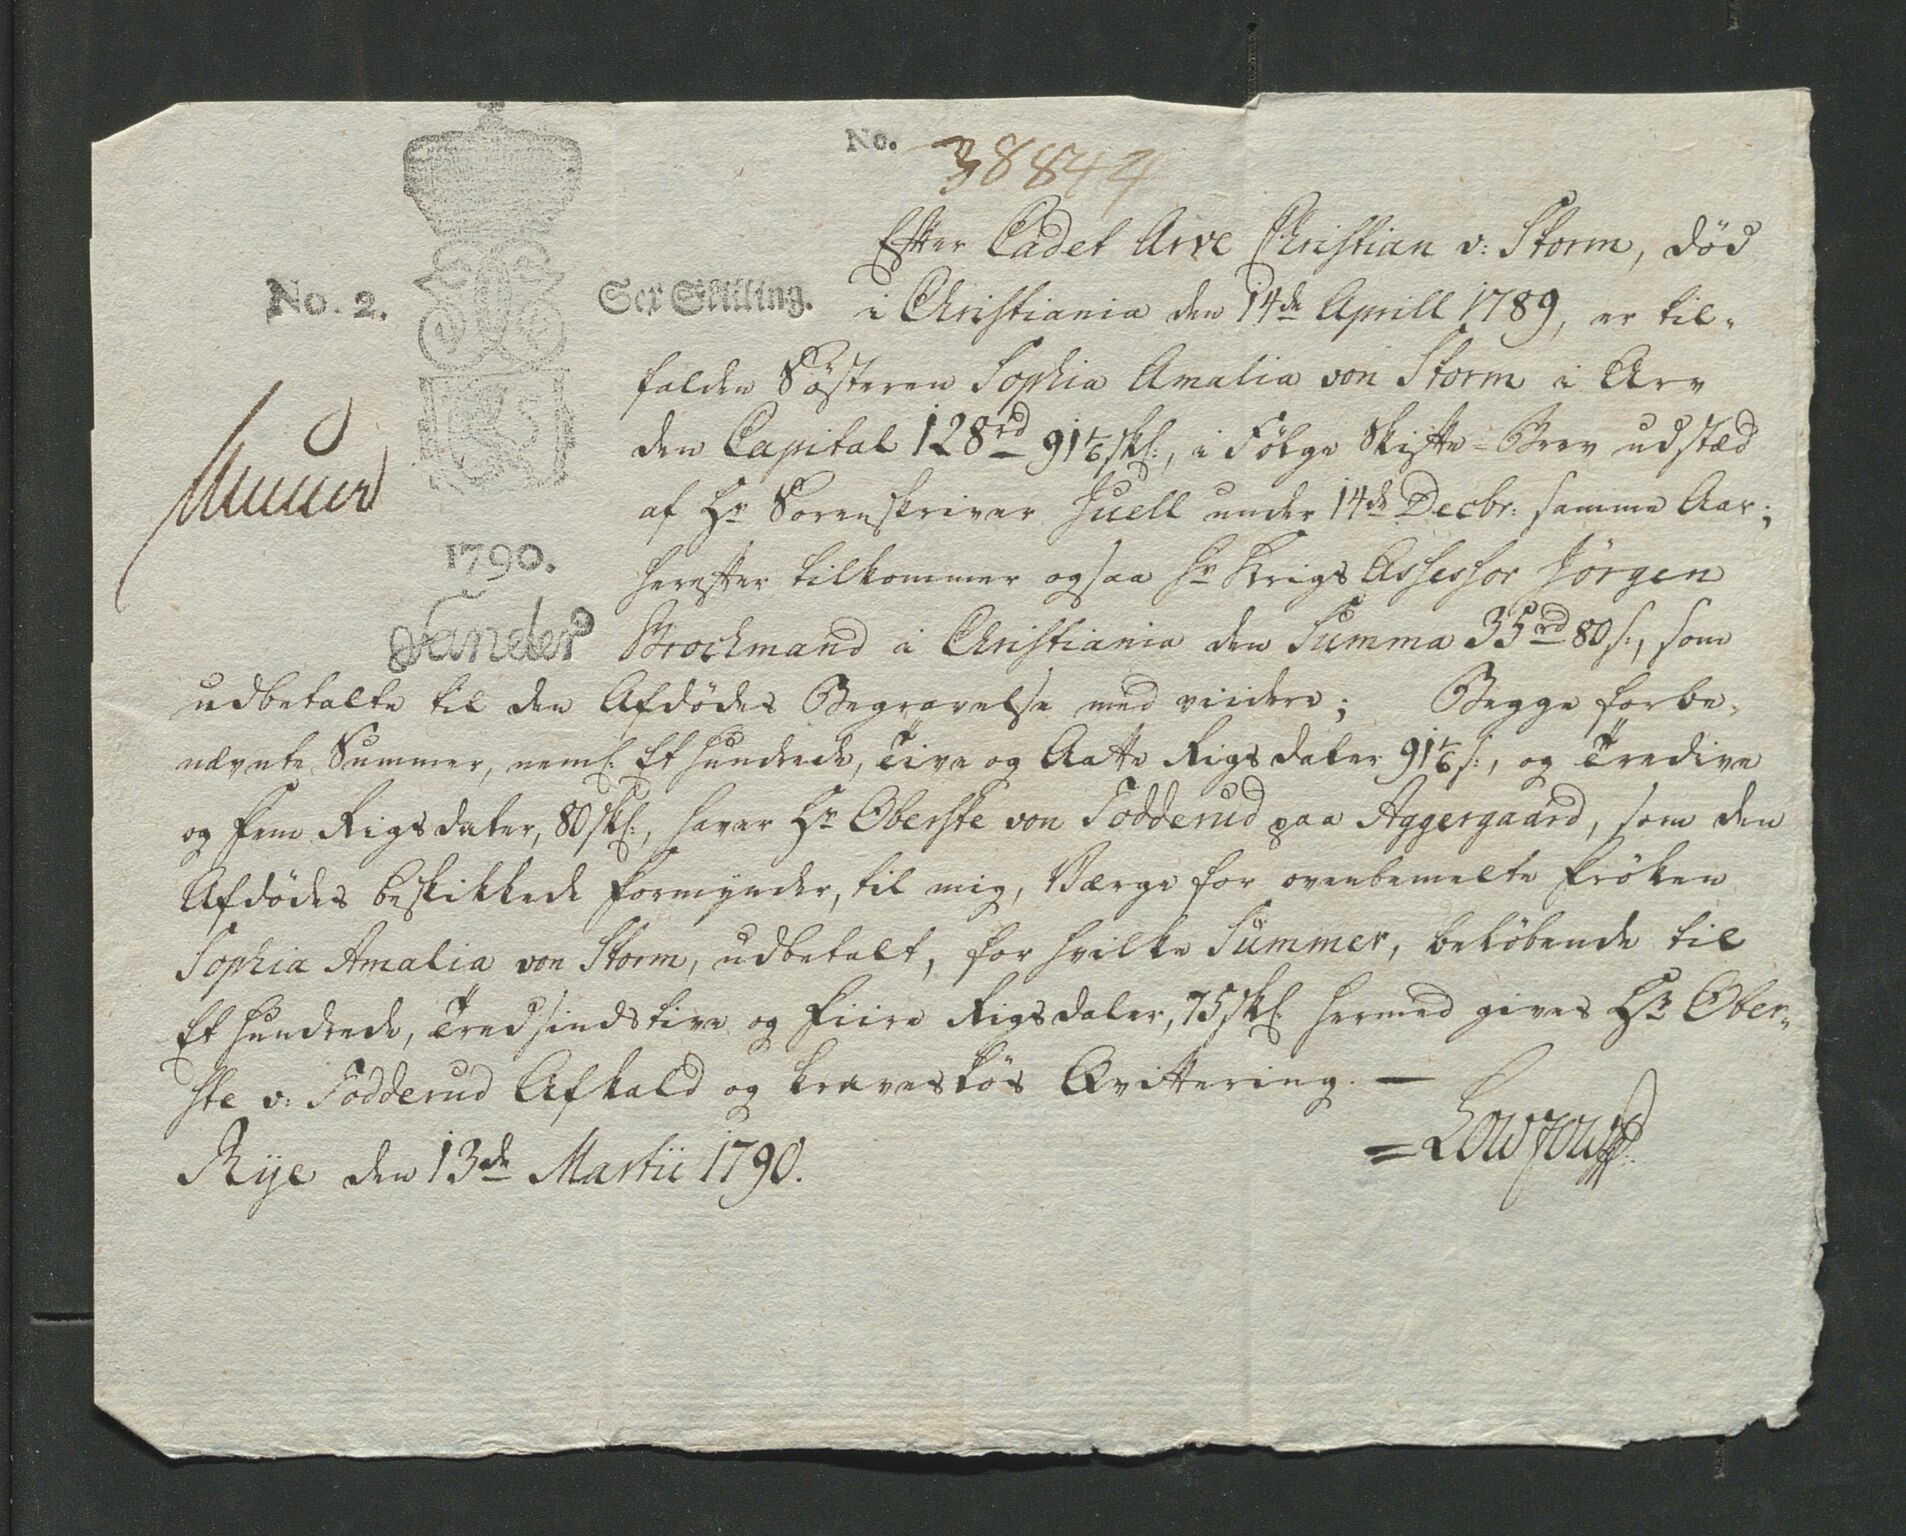 No. 38844
No. 2.
Sex Skilling.
1790.
Efter Cadet Arve Christian v: Storm, død
i Christiania den 14de Aprill 1789, er til-
falden Søsteren Sophia Amalia von Storm i Arv
den Capital 128rd 91 1/6 skl:, i Følge Skifte-Brev udstæd
af Hr Sorenskriver Juell under 14de Decbr: samme Aar;
herefter tilkommer ogsaa Hr Krigs Assessor Jørgen
Brochmand i Christiania den Summa 35rd 80 s:, som
udbetalte til den Afdødes Begravelse med viidere; Begge forbe-
nævnte Summer, neml: Et hundrede, Tive og Aatte Rigsdaler 91 1/6 s:, og Tredive
og Fem Rigsdaler, 80 skl:, haver Hr Oberste von Todderud paa Aggergaard, som den
Afdødes beskikkede Formynder, til mig, Værge for ovenbemelte Frøken
Sophia Amalia von Storm, udbetalt, for hvilke Summer, beløbende til
Et hundrede, Tredsindstive og Fiire Rigsdaler, 75 skl: hermed gives Hr Ober-
ste v: Todderud Afkald og kravesløs Qvittering. —
Rye den 13de Martii 1790.
Lowzow